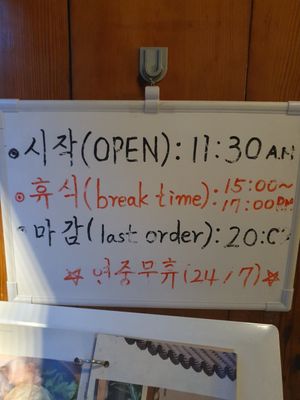 시작(OPEN): 11:30 A.M
휴식(break time): 15:00~
17:00 PM
마감(last order): 20:0
☆연중무휴(24/7)☆